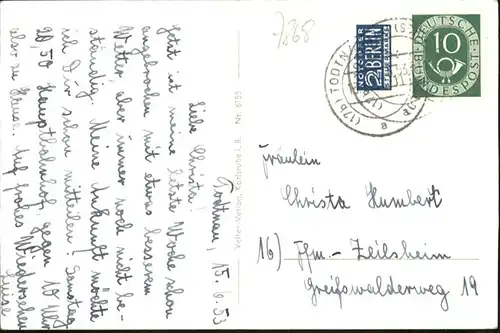 Todtnau, 15.6.53
Liebe Christa!
Jetzt ist meine letzte Woche schon
angebrochen mit etwas besserem
Wetter aber immer noch nicht be-
ständig. Meine Ankunft möchte
ich Dir schon mitteilen! Samstag
20,50 Hauptbahnhof, gegen 10 Uhr
also zu Hause. Auf frohes Wiedersehen
Luise
Nr. 6155
Karlsruhe i. B.
7868
NOTOPFER
2 BERLIN
STEUERMARKE
DEUTSCHE
BUNDESPOST
10
(17b) TODTNAU
a
Fräulein
Christa Humbert
16) Ffm.-Zeilsheim
Greifswalderweg 19